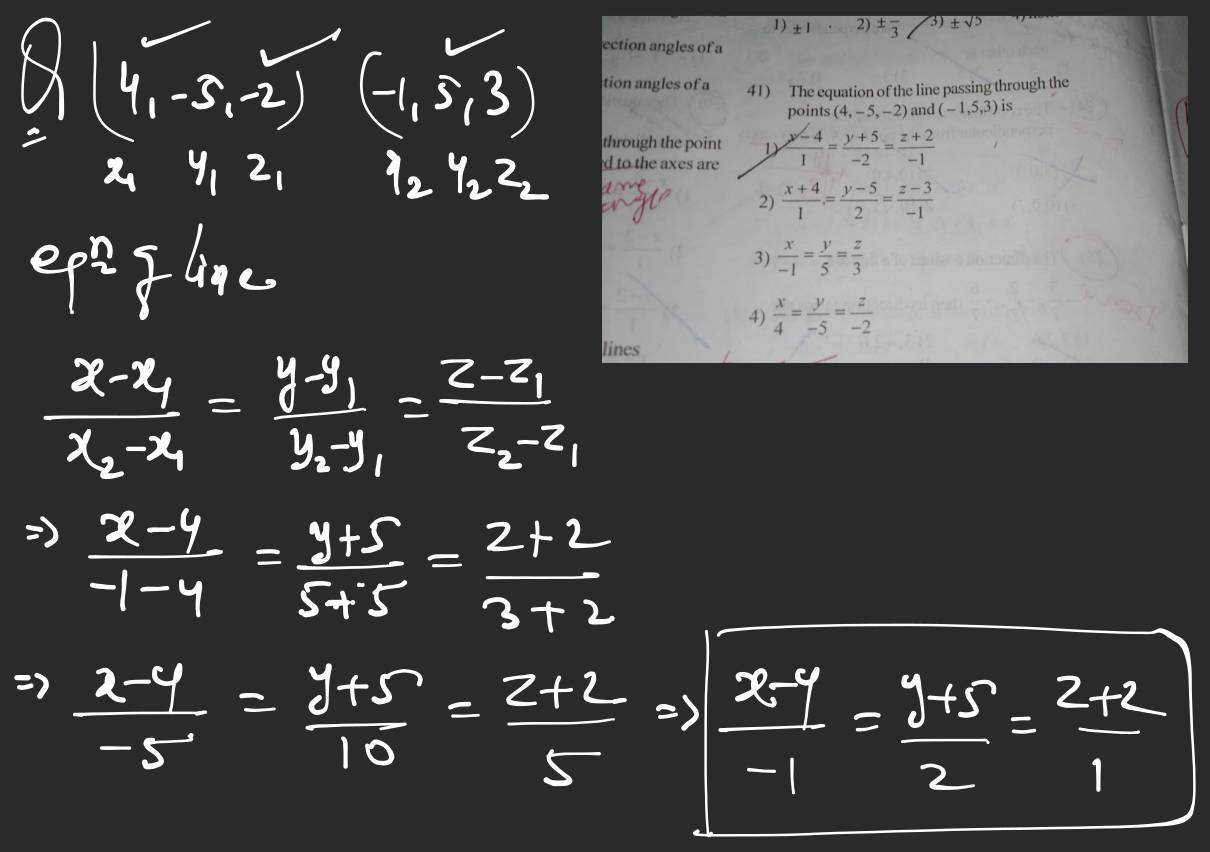 Q (4, -5, -2) (-1, 5, 3)
x₁ y₁ z₁ x₂ y₂ z₂
eqⁿ of line
(x-x₁)/(x₂-x₁) = (y-y₁)/(y₂-y₁) = (z-z₁)/(z₂-z₁)
=> (x-4)/(-1-4) = (y+5)/(5+5) = (z+2)/(3+2)
=> (x-4)/(-5) = (y+5)/10 = (z+2)/5 => (x-4)/(-1) = (y+5)/2 = (z+2)/1
1) ±1 2) 3) ±√5
ection angles of a
tion angles of a
through the point
d to the axes are
angle
lines
41) The equation of the line passing through the
points (4, -5, -2) and (-1,5,3) is
1) (x-4)/1 = (y+5)/-2 = (z+2)/-1
2) (x+4)/1 = (y-5)/2 = (z-3)/-1
3) x/-1 = y/5 = z/3
4) x/4 = y/-5 = z/-2